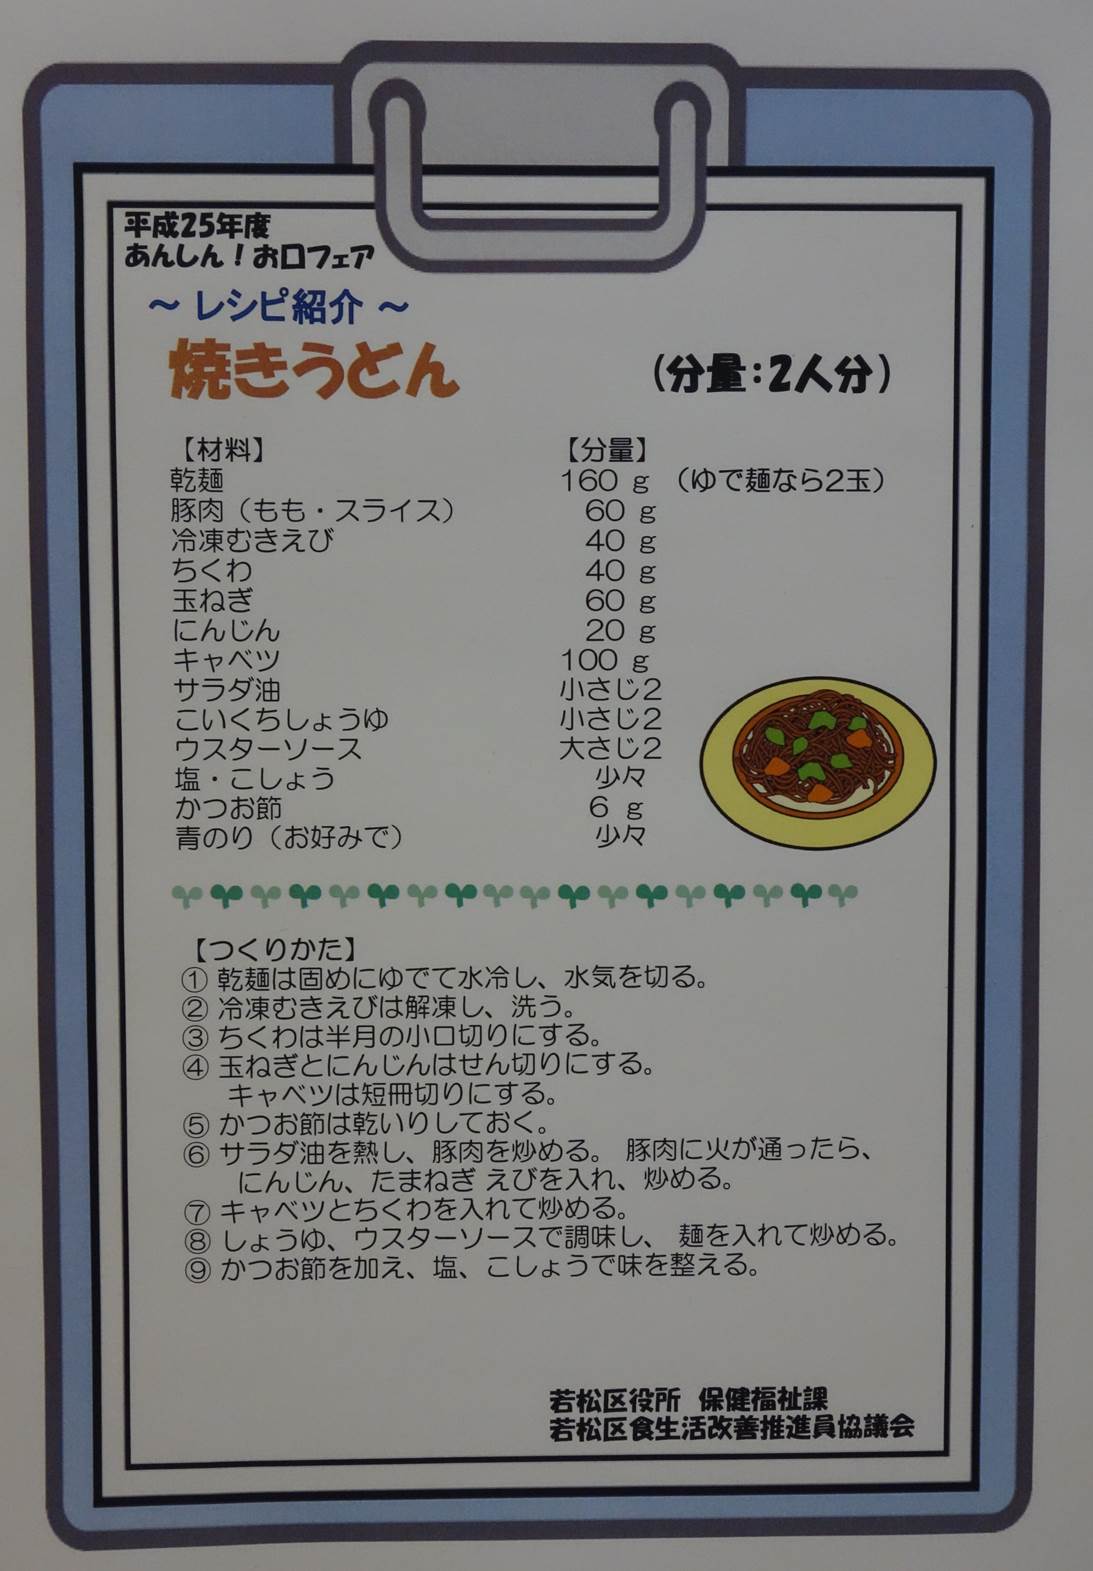 平成25年度
あんしん！お口フェア
～ レシピ紹介 ～
焼きうどん （分量：2人分）
【材料】 【分量】
乾麺 160 g （ゆで麺なら2玉）
豚肉（もも・スライス） 60 g
冷凍むきえび 40 g
ちくわ 40 g
玉ねぎ 60 g
にんじん 20 g
キャベツ 100 g
サラダ油 小さじ2
こいくちしょうゆ 小さじ2
ウスターソース 大さじ2
塩・こしょう 少々
かつお節 6 g
青のり（お好みで） 少々
【つくりかた】
① 乾麺は固めにゆでて水冷し、水気を切る。
② 冷凍むきえびは解凍し、洗う。
③ ちくわは半月の小口切りにする。
④ 玉ねぎとにんじんはせん切りにする。
キャベツは短冊切りにする。
⑤ かつお節は乾いりしておく。
⑥ サラダ油を熱し、豚肉を炒める。 豚肉に火が通ったら、
にんじん、たまねぎ えびを入れ、炒める。
⑦ キャベツとちくわを入れて炒める。
⑧ しょうゆ、ウスターソースで調味し、 麺を入れて炒める。
⑨ かつお節を加え、塩、こしょうで味を整える。
若松区役所 保健福祉課
若松区食生活改善推進員協議会